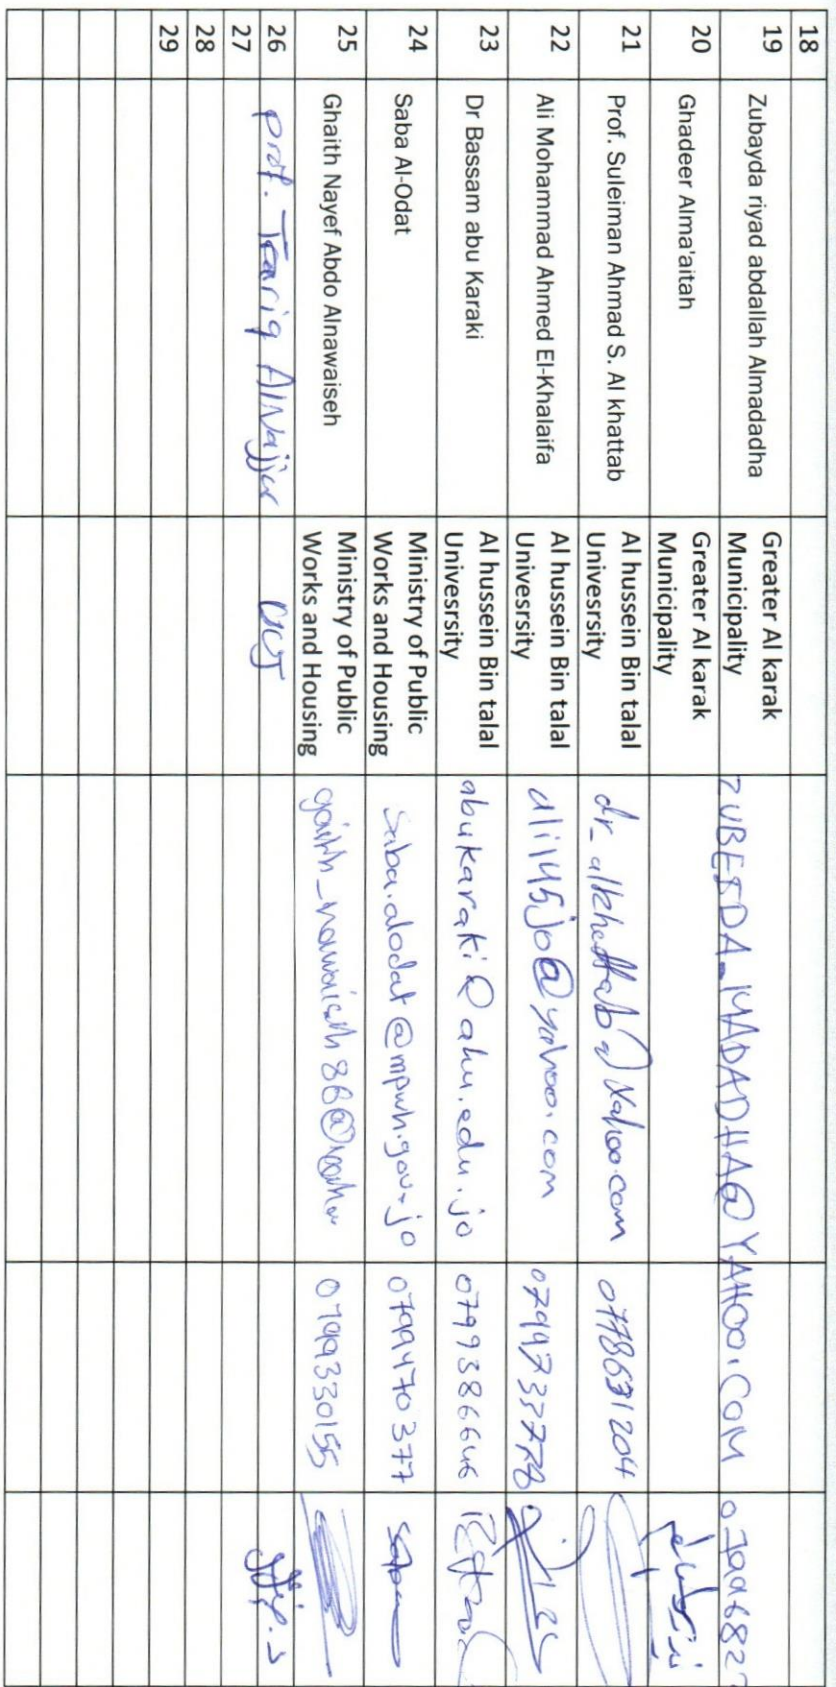 18
19 Zubayda riyad abdallah Almadadha Greater Al karak Municipality ZUBEIDA_MADADHA@YAHOO.COM
20 Ghadeer Alma'aitah Greater Al karak Municipality
21 Prof. Suleiman Ahmad S. Al khattab Al hussein Bin talal Univesrsity dr_alkhattab@yahoo.com 0778631204
22 Ali Mohammad Ahmed El-Khalaifa Al hussein Bin talal Univesrsity ali145jo@yahoo.com
23 Dr Bassam abu Karaki Al hussein Bin talal Univesrsity abukaraki@ahu.edu.jo 0799386646
24 Saba Al-Odat Ministry of Public Works and Housing saba.alodat@mpwh.gov.jo 0799470377 saba
25 Ghaith Nayef Abdo Alnawaiseh Ministry of Public Works and Housing 0799330155
26 prof. Taariq AlNajjar
27
28
29